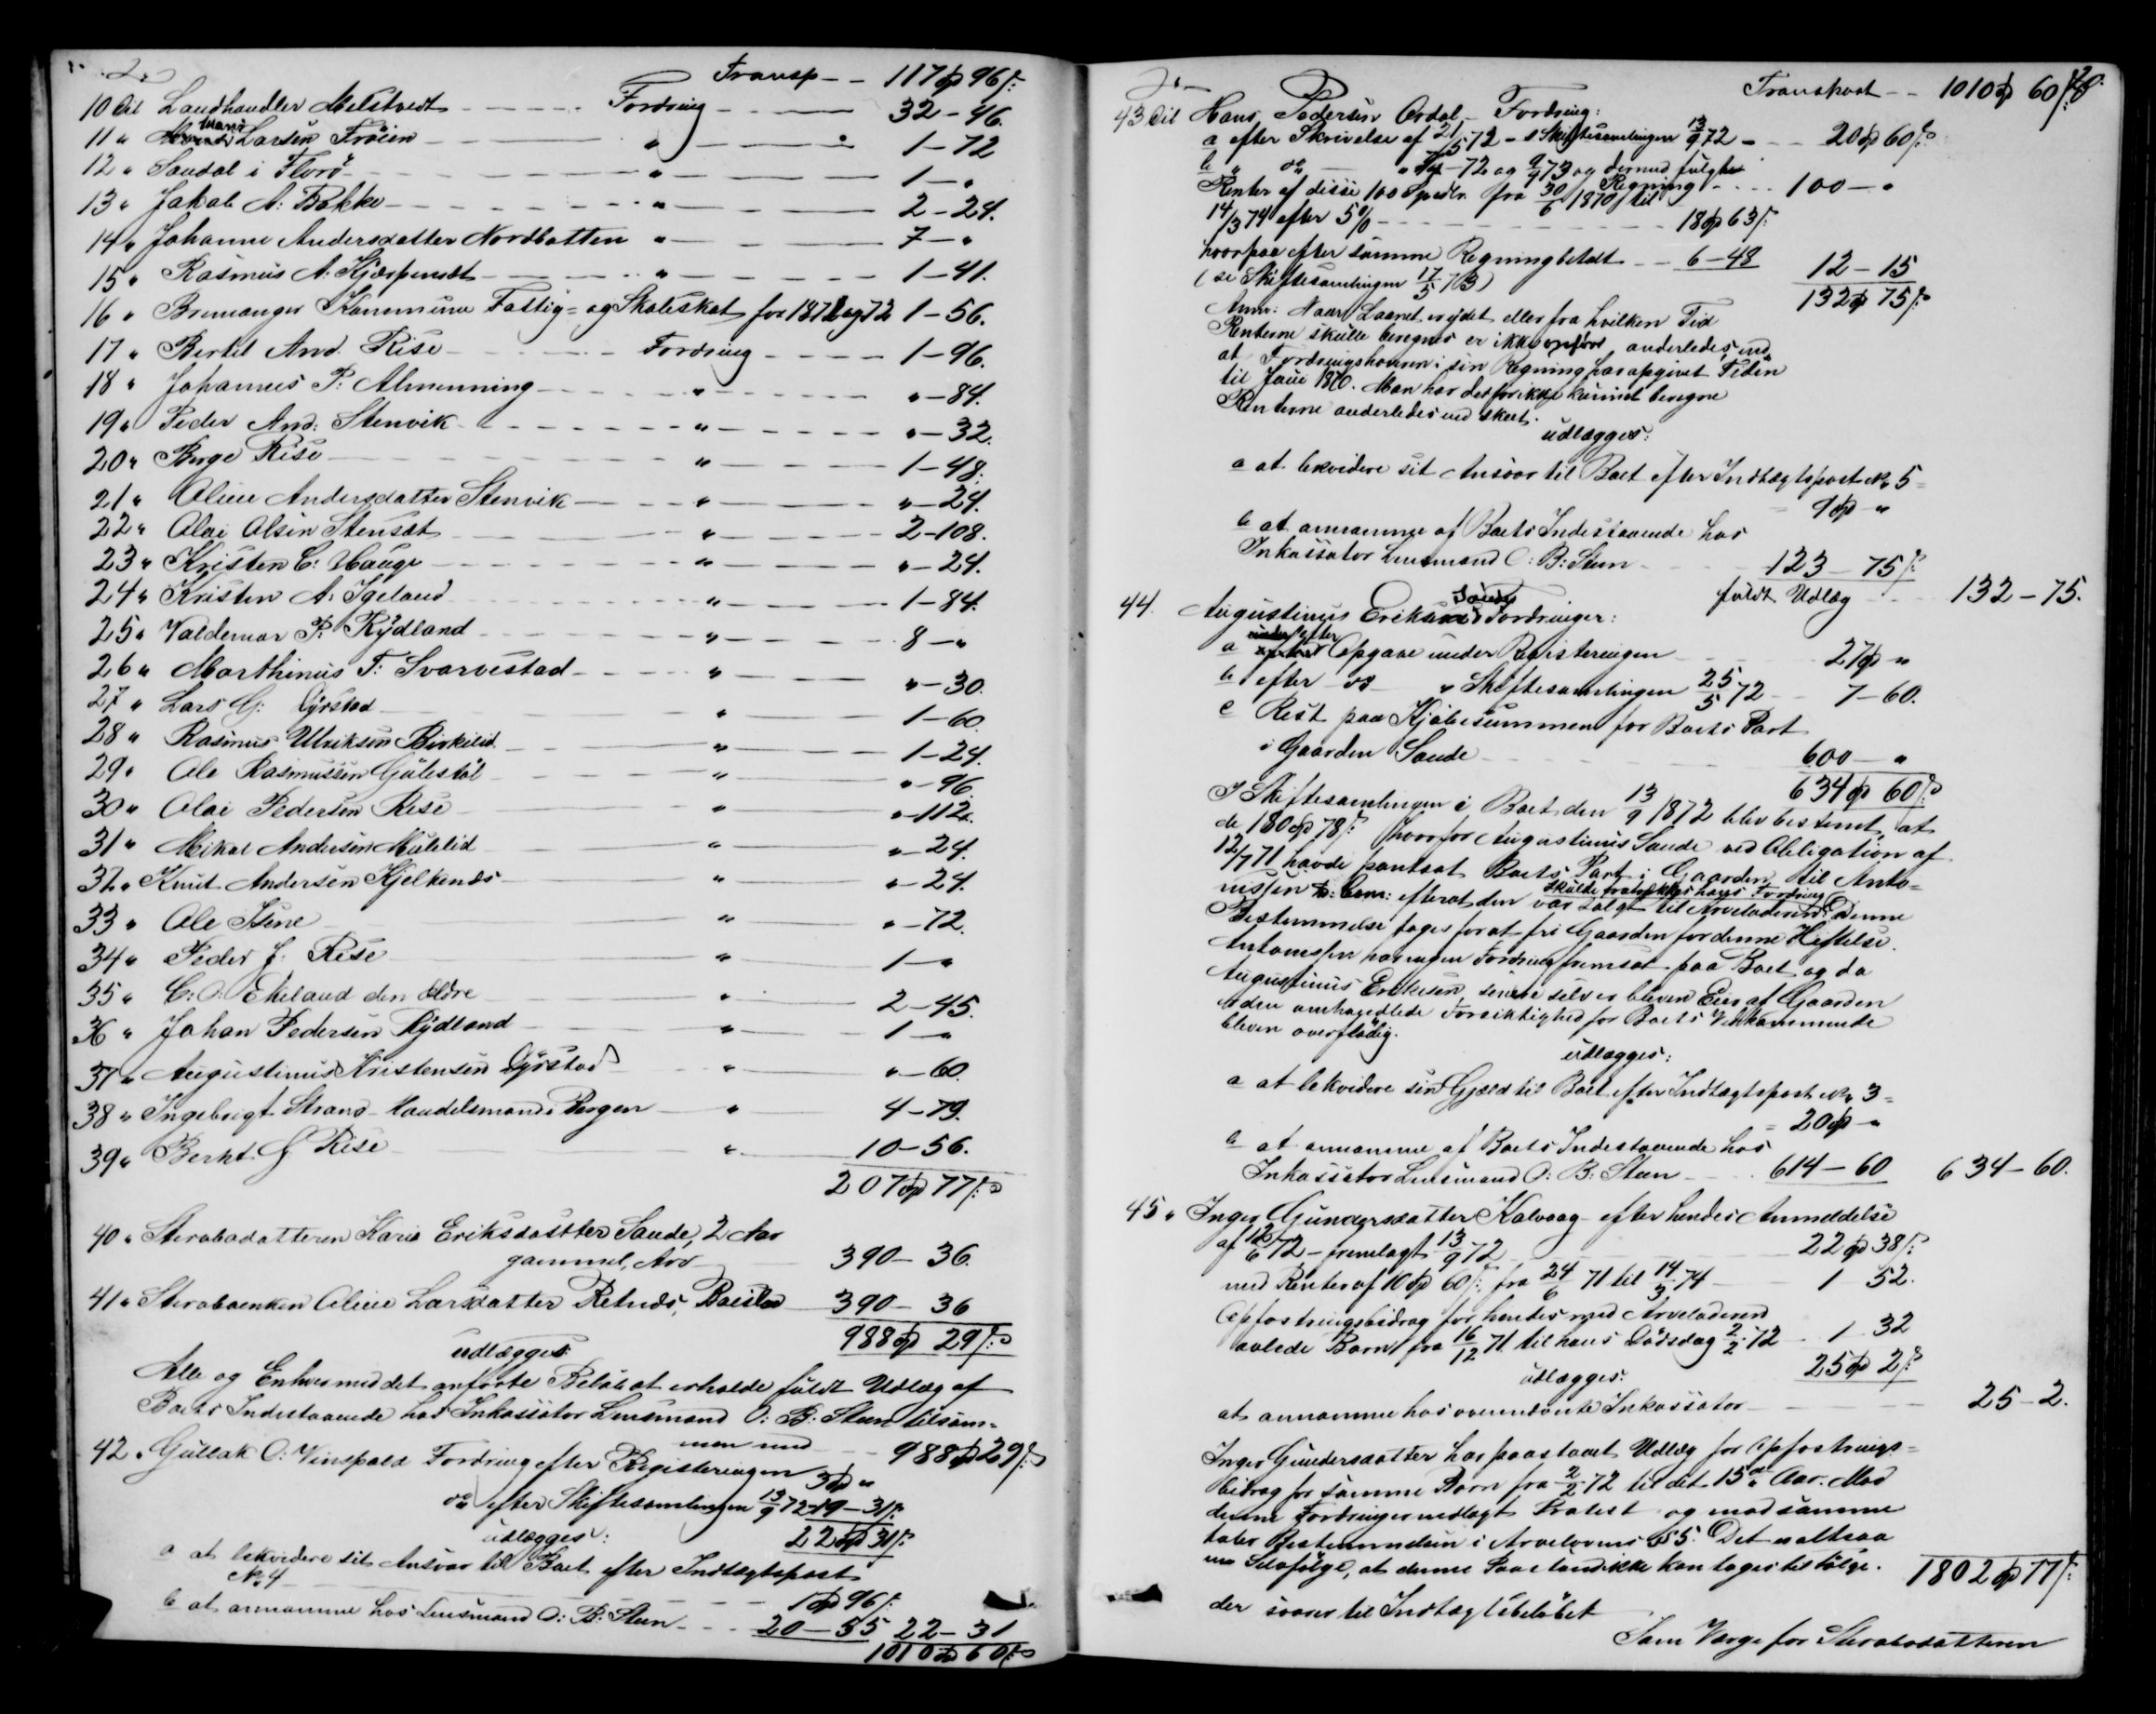 Transp - - 117 96 ß
10 til Landhandler Melstvedt - - - Fordring - - 32 - 96.
11 " Hans Larsen Fröien - - - " - - 1 - 72
12 " Sandal i Florö - - - " - - 1 - "
13 " Jakob A: Bakke - - - " - - 2 - 24.
14 " Johanne Andersdatter Nordbotten " - - 7 - "
15 " Rasmus A: - - - " - - 1 - 41.
16 " Bremanger Kommune Fattig- og Skoleskat for 1871 og 72 1 - 56.
17 " Bertel And. Rise - - - Fordring - - 1 - 96.
18 " Johannes P: Almenning - - - " - - " - 84.
19 " Peder And: Stenvik - - - " - - " - 32.
20 " Birge Rise - - - " - - 1 - 48.
21 " Oline Andersdatter Stenvik - - - " - - " - 24.
22 " Olai Olsen Stensæt - - - " - - 2 - 108.
23 " Kristen C: Hauge - - - " - - " - 24.
24 " Kristen A: Igeland - - - " - - 1 - 84.
25 " Valdemar P: Rÿdland - - - " - - 8 - "
26 " Marthinus T: Svarvestad - - - " - - " - 30.
27 " Lars G: Gyrstad - - - " - - 1 - 60.
28 " Rasmus Ulriksen Birkelid - - - " - - 1 - 24.
29 " Ole Rasmussen Gulestöl - - - " - - " - 96.
30 " Olai Pedersen Rise - - - " - - " - 112.
31 " Mikal Andersen Mulelid - - - " - - " - 24.
32 " Knut Andersen Kjelkenes - - - " - - " - 24.
33 " Ole Stene - - - " - - " - 72.
34 " Peder J: Rise - - - " - - 1 - "
35 " C: O: Ekeland den ældre - - - " - - 2 - 45.
36 " Johan Pedersen Rÿdland - - - " - - 1 - "
37 " Augustinus Kristensen Gyrstad - - - " - - " - 60.
38 " Ingebrigt Strand Handelsmand i Bergen - - " - - 4 - 79.
39 " Bernt J Rise - - - " - - 10 - 56.
207 77 ß
40 " Sterbodatteren Karie Eriksdatter Sande, 2 Aar
gammel, Arv 390 - 36.
41 " Sterboenken Oline Larsdatter Retnes, Boeslod 390 - 36
988 29 ß
udlægges:
Alle og Enhver med det anförte Belöb at erholde fuldt Udlæg af
Boets Indestaaende hos Inkassator Lensmand O: B: Steen tilsam-
men med - - 988 29 ß
42 " Gullak O: Vinspold Fordring efter Registeringen 3 "
do efter Skiftesamlingen 13/9 72 - 19 - 31 ß
udlægges: 22 31 ß
a at lekvidere sit Ansvar til Boet efter Indtægtspost
No 4 - - - 1 96 ß
b at annamme hos Lensmand O: B: Steen - - 20 - 55 22 - 31
1010 60 ß
Transport - - 1010 60 ß
43 til Hans Pedersen Ordal - Fordring:
a efter Skrivelse af 21/5 72 - Skiftesamlingen 13/9 72 - - - 20 60 ß
b " do " 72 og 9/9 73 og dermed fulgte
Regning - - - 100 - "
Renter af disse 100 Spdlr. fra 30/6 1870 til
14/3 74 efter 5% - - - 18 63 ß
hvorpaa efter samme Regning betalt - - 6 - 48 12 - 15
(se Skiftesamlingen 17/5 73) 132 75 ß
Anm: Naar Laanet er ydet eller fra hvilken Tid
Renterne skulle beregnes er ikke anfört anderledes, end
at Fordringshaveren i sin Regning har opgivet Tiden
til Juni 1870. Man har derfor ikke kunnet beregne
Renterne anderledes end skeet.
udlægges:
a at lekvidere sit Ansvar til Boet efter Indtægtspost No 5 =
9 "
b at annamme af Boets Indestaaende hos
Inkassator Lensmand O: B: Steen - 123 - 75 ß
fuldt Udlæg - - 132 - 75.
44. Augustinus Eriksens Sande Fordringer:
a efter Opgave under Registeringen - - 27 "
b efter do " Skiftesamlingen 25/5 72 - - 7 - 60.
c Rest paa Kjöbesummen for Boets Part
i Gaarden Sande - - - 600 - "
634 60 ß
I Skiftesamlingen i Boet den 13/9 1872 blev bestemt, at
de 180 78 ß hvorfor Augustinus Sande ved Obligation af
12/7 71 havde pantsat Boets Part i Gaarden til Anto-
nissen & Com: efterat den var solgt til Arveladeren skulde fratrækkes hans Fordring. Denne
Bestemmelse toges for at fri Gaarden for denne Heftelse.
Antonissen har ingen Fordring fremsat paa Boet og da
Augustinus Eriksen senere selv er bleven Eier af Gaarden
er den omhandlede Forsiktighed for Boets Vedkommende
bleven overflödig.
udlægges:
a at lekvidere sin Gjæld til Boet efter Indtægtspost No 3 =
= 20 "
b at annamme af Boets Indestaaende hos
Inkassator Lensmand O: B: Steen - - 614 - 60 634 - 60.
45 " Inger Gundersdatter Kalvaag efter hendes Anmeldelse
af 12/6 72 - fremlagt 13/9 72 - - 22 38 ß
med Renter af 10 60 ß fra 24/6 71 til 14/3 74 - 1 52.
Opfostringsbidrag for hendes med Arveladeren
avlede Barn fra 16/12 71 til hans Dödsdag 2/2 72 - 1 32
udlægges: 25 2 ß
at annamme hos ovennævnte Inkassator - - - 25 - 2.
Inger Gundersdatter har paastaaet Udlæg for Opfostrings-
bidrag for samme Barn fra 2/2 72 til det 15de Aar. Mod
denne Fordring er nedlagt Protest og mod samme
taler Bestemmelsen i Arvelovens § 55. Det er altsaa
en Selvfölge, at denne Paastand ikke kan tages tilfölge.
1802 77 ß
der svarer til Indtægtsbelöbet
Som Værge for Sterbodatteren